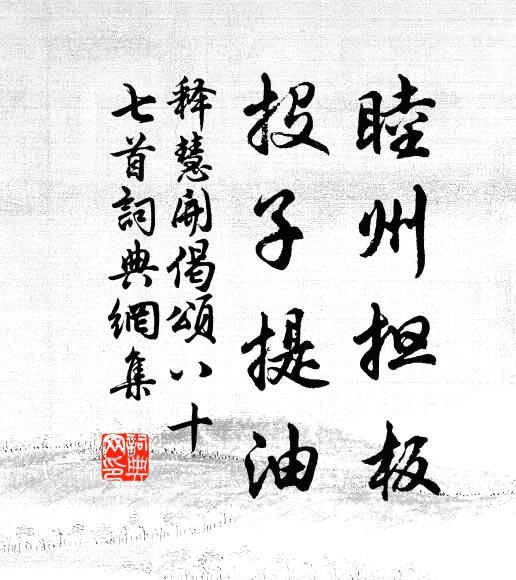 睦州担板
投子提油
释慧開偈頌八十
七首詞典網集
詞典網印